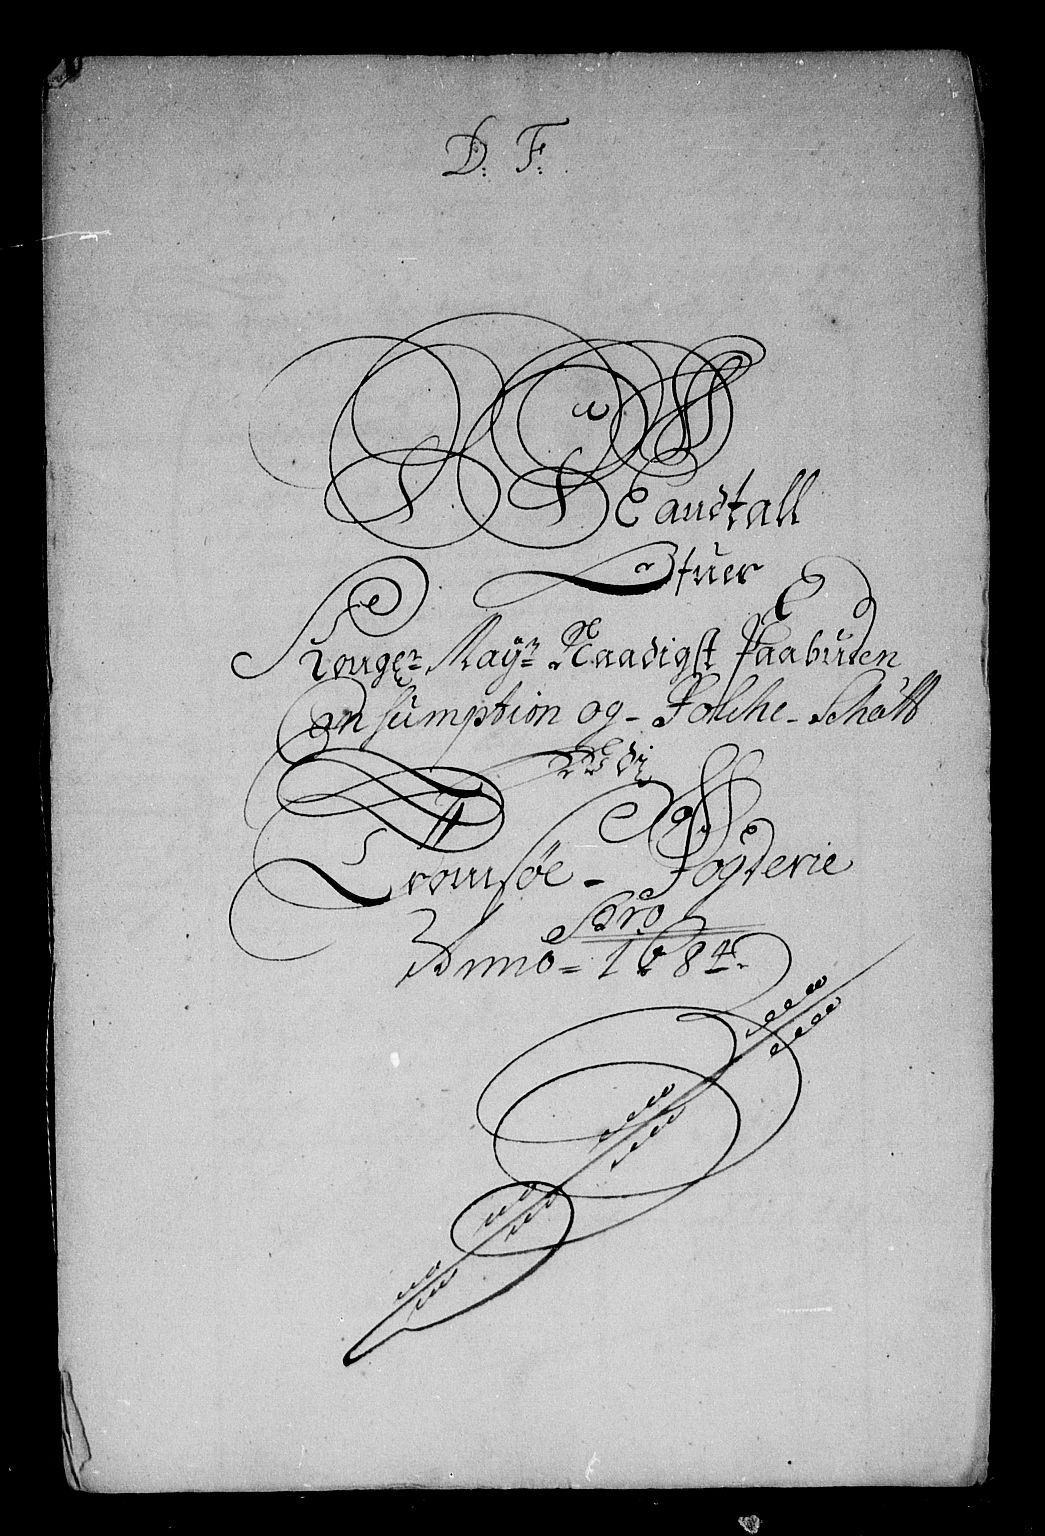 D: F:
Mandtall
Ofuer
Kongr: Mayr: Naadigst Paabuden
Consumption og- Folche- Schatt
Udj
Tromsøe- Fogderie
Pro
Anno = 1684.